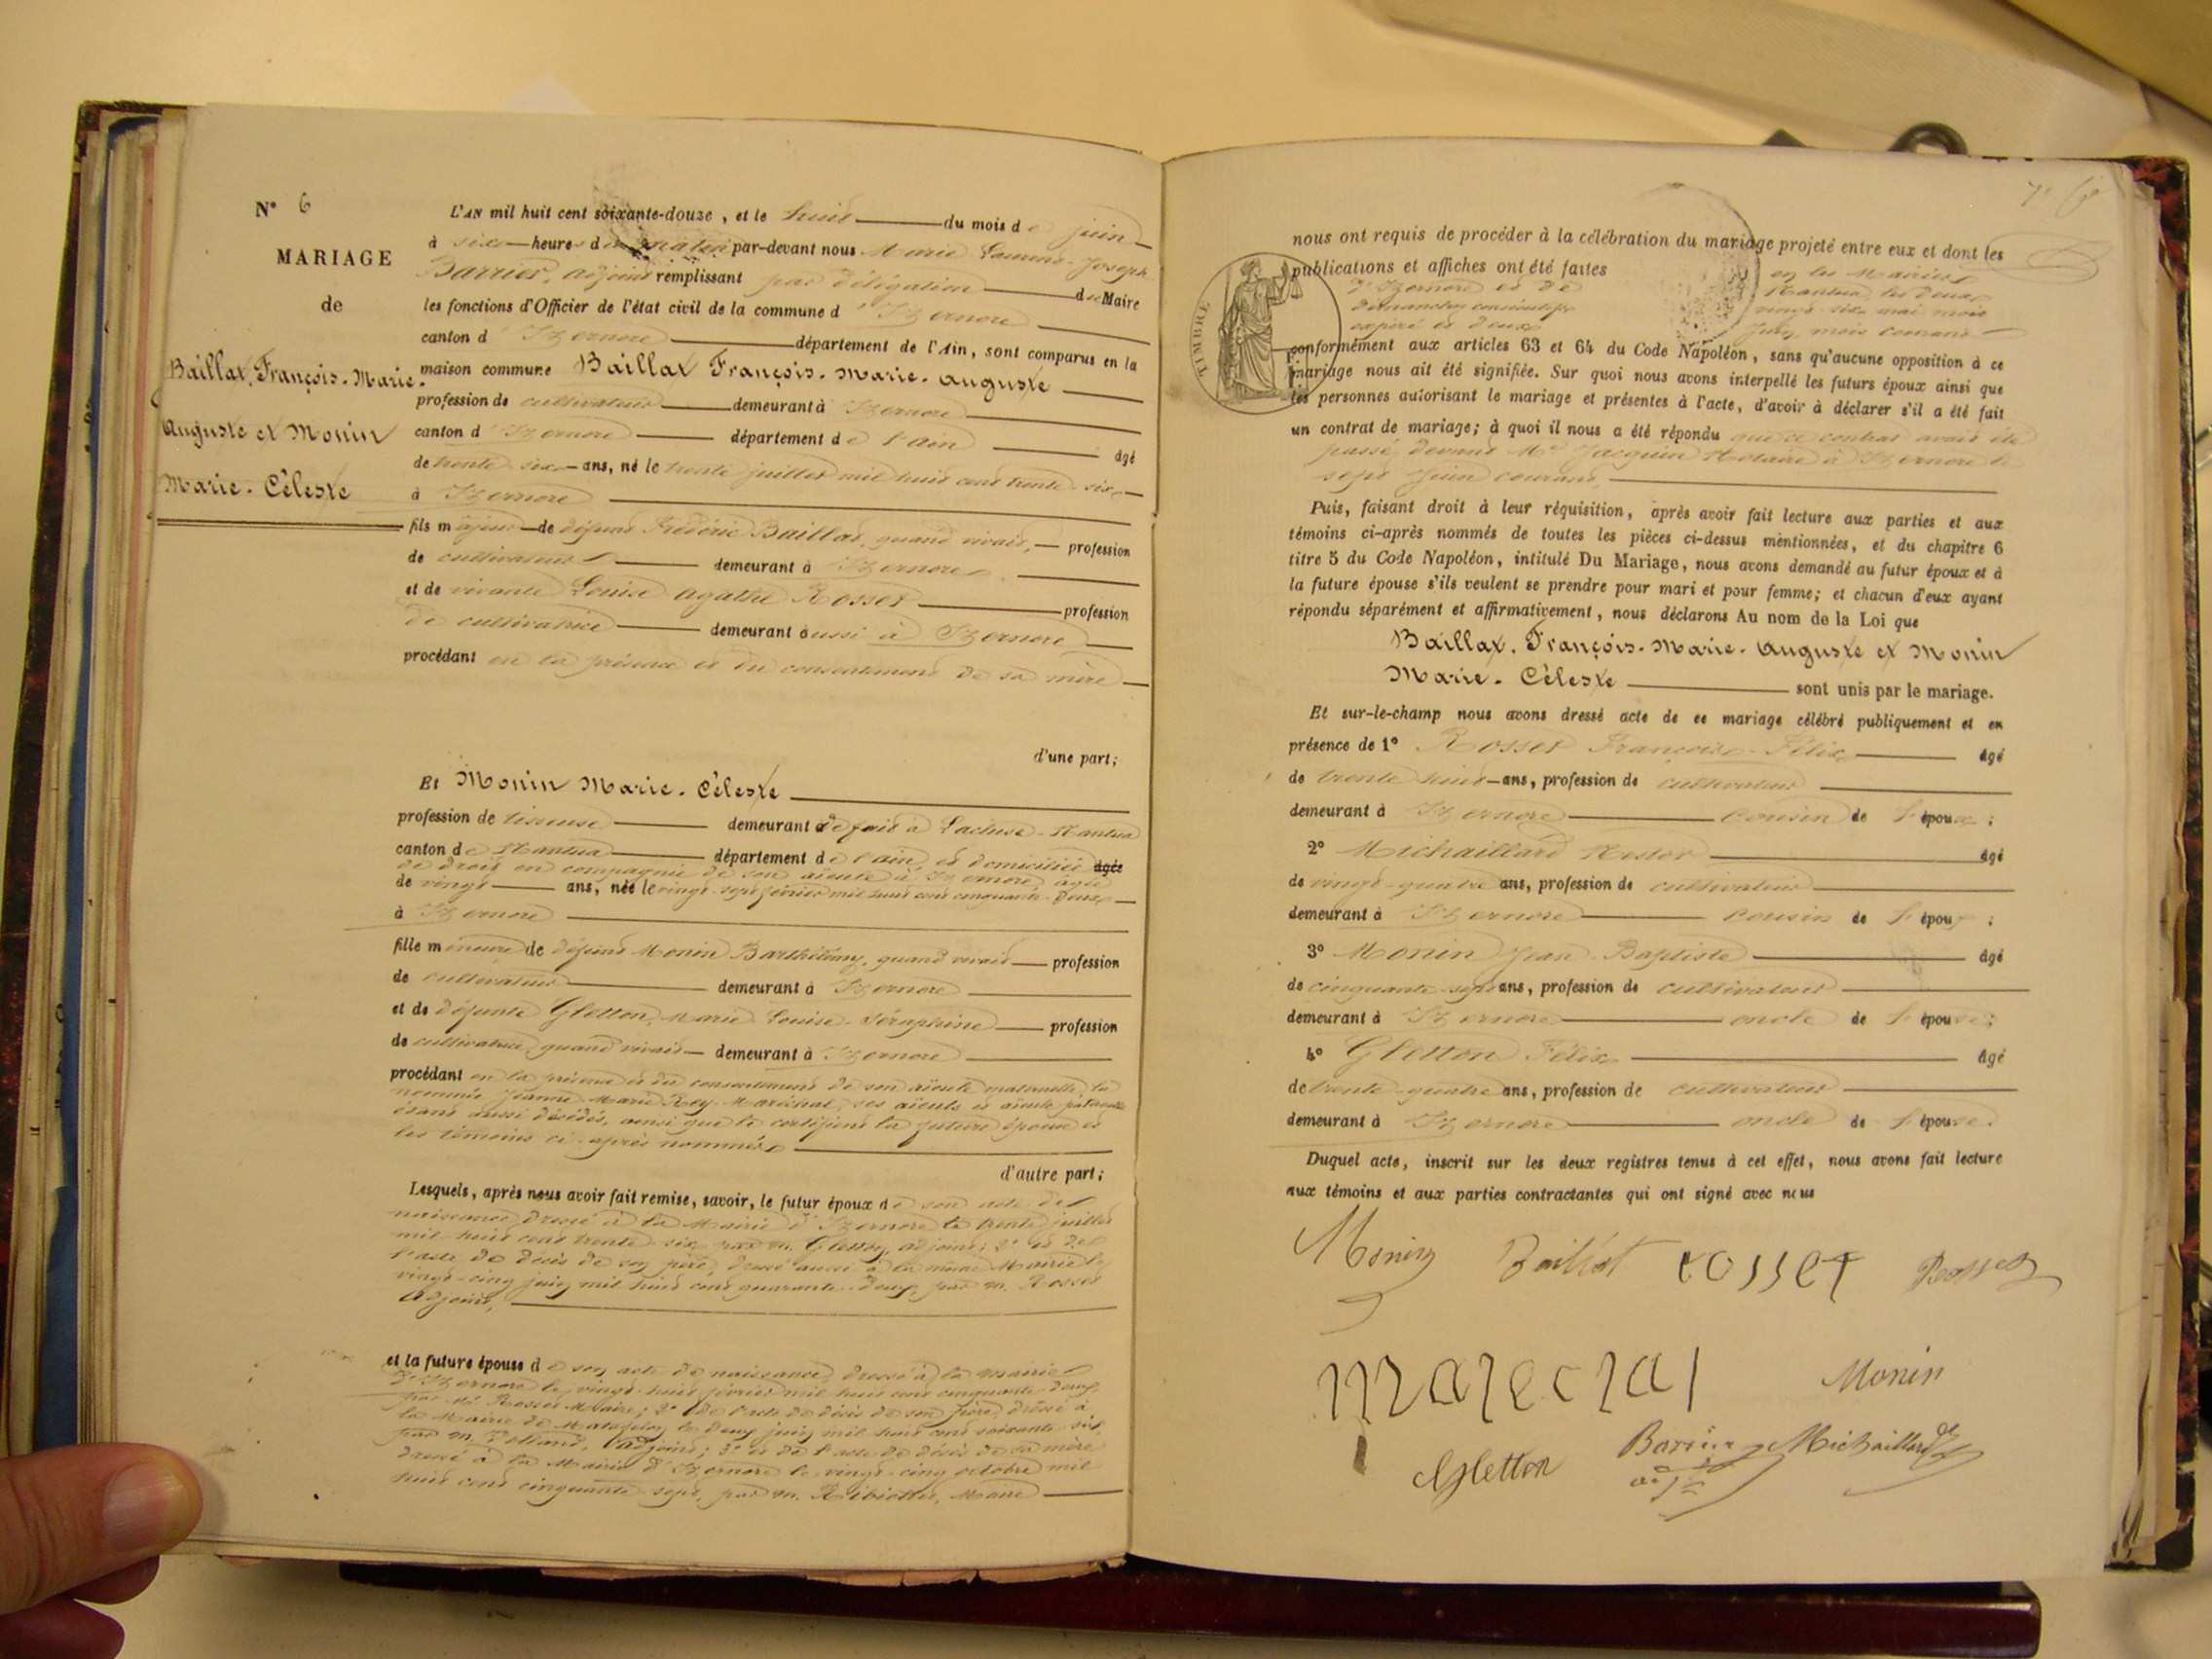 N° 6
MARIAGE
de
Baillat, François-Marie-
Auguste et Monin
Marie-Céleste
L'AN mil huit cent soixante-douze, et le huit du mois de juin
à six heures du matin par-devant nous Marie Laurent-Joseph
Barrier, adjoint remplissant par délégation du Maire
les fonctions d'Officier de l'état civil de la commune d'Izernore
canton d'Izernore département de l'Ain, sont comparus en la
maison commune Baillat François-Marie-Auguste
profession de cultivateur demeurant à Izernore
canton d'Izernore département de l'Ain âgé
de trente-six ans, né le trente juillet mil huit cent trente-six
à Izernore
fils majeur de défunt Frédéric Baillat, quand vivait, profession
de cultivateur demeurant à Izernore
et de vivante Louise Agathe Rosset profession
de cultivatrice demeurant aussi à Izernore
procédant en la présence et du consentement de sa mère
d'une part;
Et Monin Marie-Céleste
profession de tisseuse demeurant de fait à Lacluse-Nantua
canton de Nantua département de l'Ain et domiciliée âgée
de droit en compagnie de son aïeule à Izernore, âgée
de vingt ans, née le vingt-sept février mil huit cent cinquante-deux
à Izernore
fille mineure de défunt Monin Barthélémy, quand vivait profession
de cultivateur demeurant à Izernore
et de défunte Gletton, Marie Louise-Séraphine profession
de cultivatrice, quand vivait demeurant à Izernore
procédant en la présence et du consentement de son aïeule maternelle, la
nommée Jeanne Marie Rey-Maréchal, ses aïeuls et aïeule paternelle
étant aussi décédés, ainsi que le certifient la future épouse et
les témoins ci-après nommés
d'autre part;
Lesquels, après nous avoir fait remise, savoir, le futur époux de son acte de
naissance dressé à la Mairie d'Izernore le trente juillet
mil huit cent trente-six par m. Gletton, adjoint; 2° et de
l'acte de décès de son père, dressé aussi à la même Mairie le
vingt-cinq juin mil huit cent quarante-deux, par m. Rosset
Adjoint,
et la future épouse de son acte de naissance, dressé à la mairie
d'Izernore le vingt-huit février mil huit cent cinquante-deux,
par Mr Rosset Maire; 2° de l'acte de décès de son père, dressé à
la Mairie de Matafelon le deux juin mil huit cent soixante-six
par m. adjoint; 3° et de l'acte de décès de sa mère
dressé à la Mairie d'Izernore le vingt-cinq octobre mil
huit cent cinquante-sept, par m. Maire
nous ont requis de procéder à la célébration du mariage projeté entre eux et dont les
publications et affiches ont été faites en les Mairies
d'Izernore et de Nantua, les deux
dimanches consécutifs vingt-six mai mois
expiré et deux juin, mois courant
TIMBRE
conformément aux articles 63 et 64 du Code Napoléon, sans qu'aucune opposition à ce
mariage nous ait été signifiée. Sur quoi nous avons interpellé les futurs époux ainsi que
les personnes autorisant le mariage et présentes à l'acte, d'avoir à déclarer s'il a été fait
un contrat de mariage; à quoi il nous a été répondu que ce contrat avait été
passé devant Me Jacquin Notaire à Izernore le
sept juin courant.
Puis, faisant droit à leur réquisition, après avoir fait lecture aux parties et aux
témoins ci-après nommés de toutes les pièces ci-dessus mentionnées, et du chapitre 6
titre 5 du Code Napoléon, intitulé Du Mariage, nous avons demandé au futur époux et à
la future épouse s'ils veulent se prendre pour mari et pour femme; et chacun d'eux ayant
répondu séparément et affirmativement, nous déclarons Au nom de la Loi que
Baillat, François-Marie-Auguste et Monin
Marie-Céleste sont unis par le mariage.
Et sur-le-champ nous avons dressé acte de ce mariage célébré publiquement et en
présence de 1° Rosset François-Félix âgé
de trente-huit ans, profession de cultivateur
demeurant à Izernore cousin de l'époux;
2° Michaillard Nestor âgé
de vingt-quatre ans, profession de cultivateur
demeurant à Izernore cousin de l'époux;
3° Monin Jean-Baptiste âgé
de cinquante-sept ans, profession de cultivateur
demeurant à Izernore oncle de l'épouse;
4° Gletton Félix âgé
de trente-quatre ans, profession de cultivateur
demeurant à Izernore oncle de l'épouse.
Duquel acte, inscrit sur les deux registres tenus à cet effet, nous avons fait lecture
aux témoins et aux parties contractantes qui ont signé avec nous
Monin Baillat rosset Rosset
marechal Monin
Gletton Barrier Michaillard
adjt